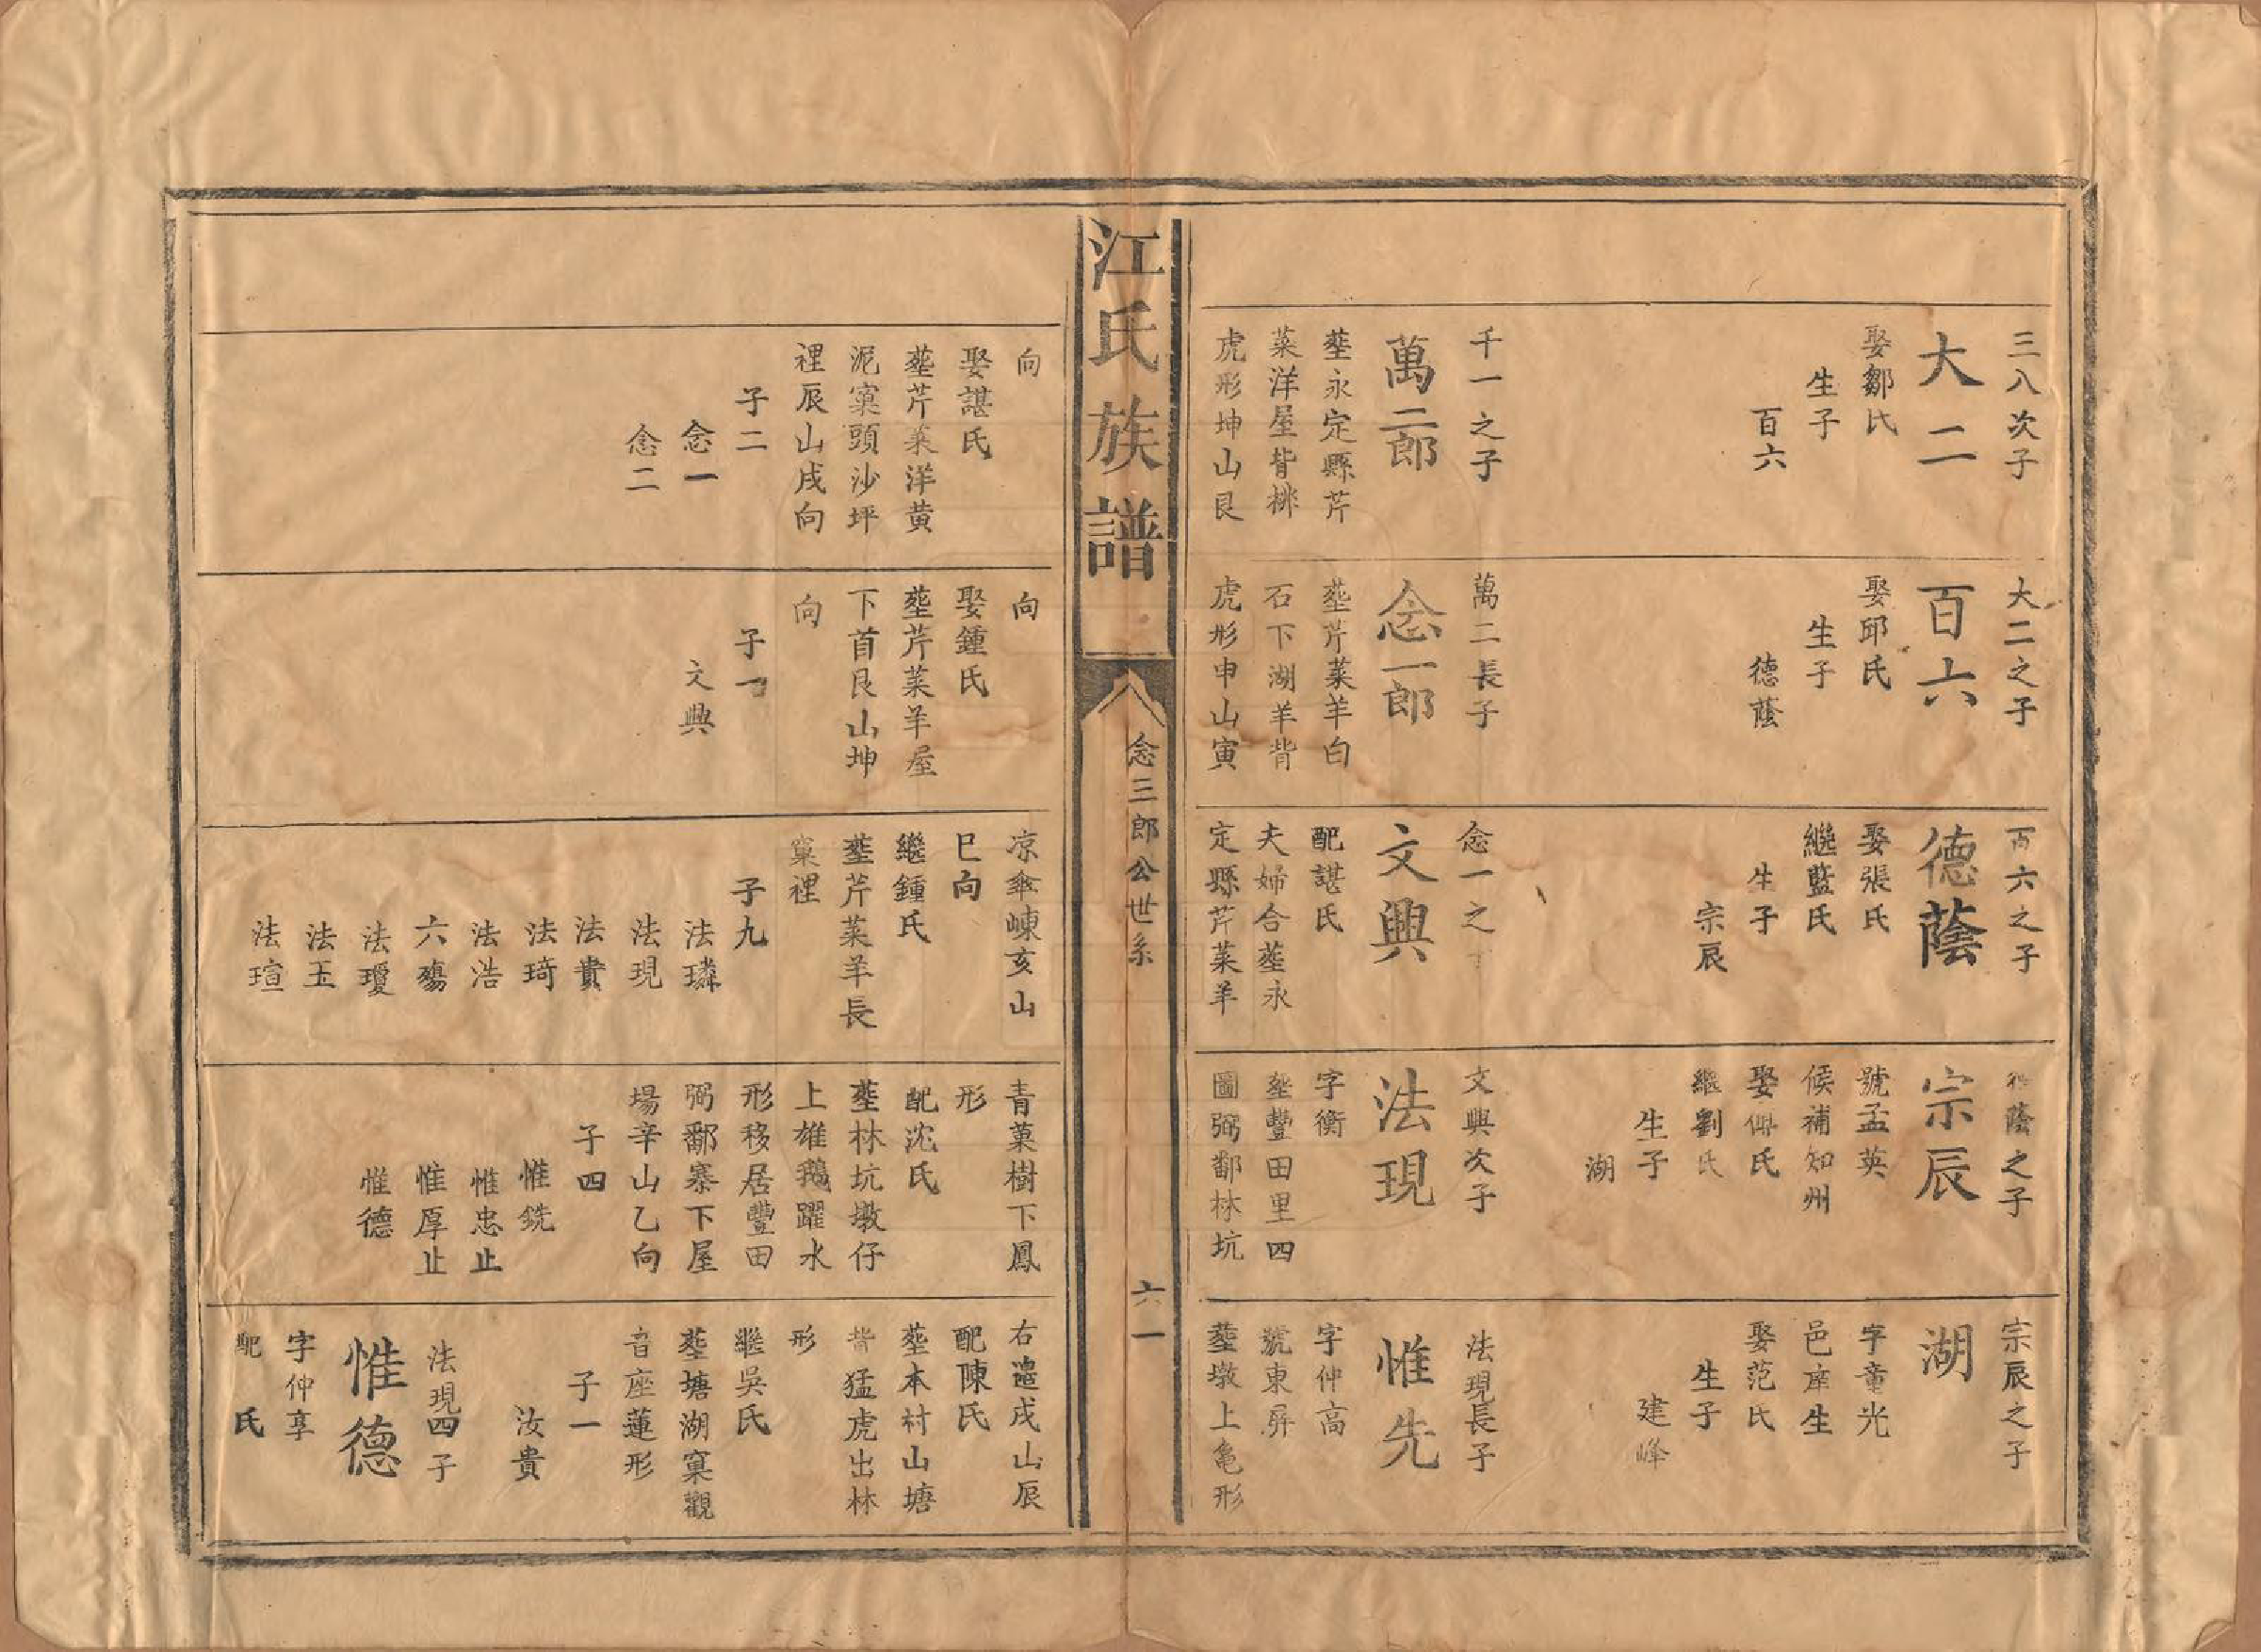 三八次子
大二
娶鄒氏
生子
百六
千一之子
萬二郎
塟永定縣芹
菜洋屋背排
虎形坤山艮
大二之子
百六
娶邱氏
生子
德蔭
萬二長子
念一郎
塟芹菜羊白
石下湖羊背
虎形申山寅
百六之子
德蔭
娶張氏
繼藍氏
生子
宗辰
念一之
文興
配諶氏
夫婦合塟永
定縣芹菜羊
德蔭之子
宗辰
號孟英
候補知州
娶傅氏
繼劉氏
生子
湖
文興次子
法現
字衡
塟豐田里四
圖弼鄱林坑
宗辰之子
湖
字童光
邑庠生
娶范氏
生子
建峰
法現長子
惟先
字仲高
號東屏
塟墩上亀形
江氏族譜
念三郎公世系
六一
向
娶諶氏
塟芹菜洋黄
泥窠頭沙坪
裡辰山戌向
子二
念一
念二
向
娶鍾氏
塟芹菜羊屋
下首艮山坤
向
子一
文興
凉傘崠亥山
巳向
繼鍾氏
塟芹菜羊長
窠裡
子九
法璘
法現
法貴
法琦
法浩
六殤
法瓊
法玉
法瑄
青菓樹下鳳
形
配沈氏
塟林坑墩仔
上雄鵝躍水
形移居豐田
弼鄱寨下屋
場辛山乙向
子四
惟銑
惟忠止
惟厚止
惟德
右邉戌山辰
配陳氏
塟本村山塘
背猛虎出林
形
繼吳氏
塟塘湖窠觀
音座蓮形
子一
汝貴
法現四子
惟德
字仲享
配 氏